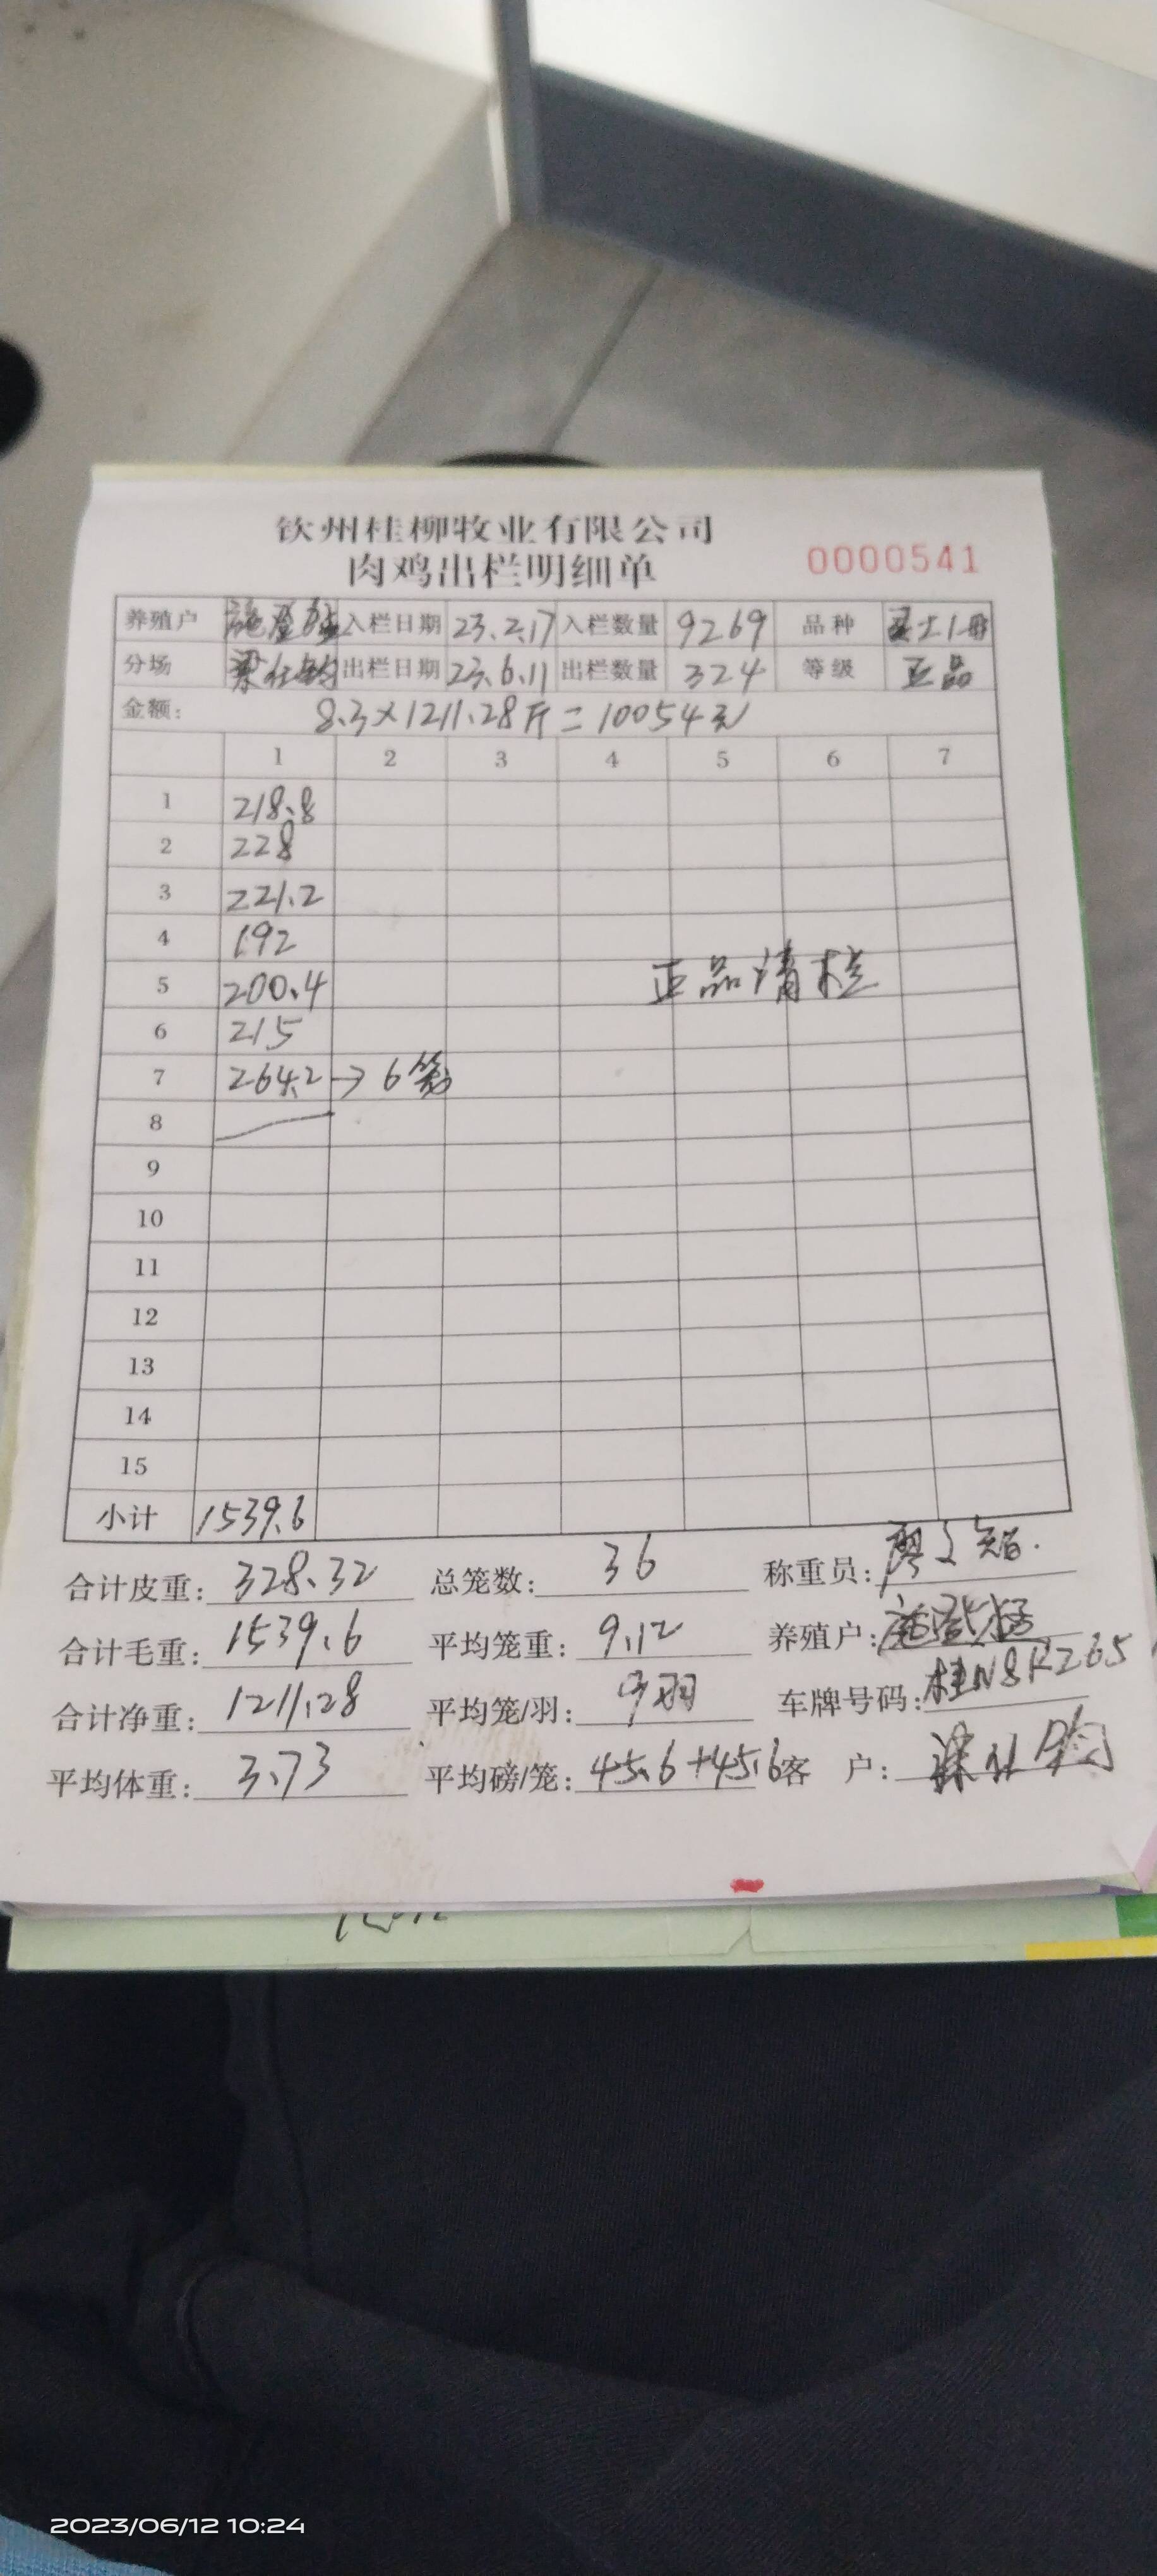 钦州桂柳牧业有限公司
肉鸡出栏明细单 0000541
养殖户 入栏日期 23.2.17 入栏数量 9269 品种 土1母
分场 梁仕钧 出栏日期 23.6.11 出栏数量 324 等级 正品
金额: 8.3×1211.28斤=10054元
1 2 3 4 5 6 7
1 218.8
2 228
3 221.2
4 192
5 200.4 正品清栏
6 215
7 264.2→6笼
8
9
10
11
12
13
14
15
小计 1539.6
合计皮重: 328.32 总笼数: 36 称重员: 廖
合计毛重: 1539.6 平均笼重: 9.12 养殖户:
合计净重: 1211.28 平均笼/羽: 9羽 车牌号码: 桂N8R265
平均体重: 3.73 平均磅/笼: 45.6+45.6 客 户: 梁仕钧
2023/06/12 10:24